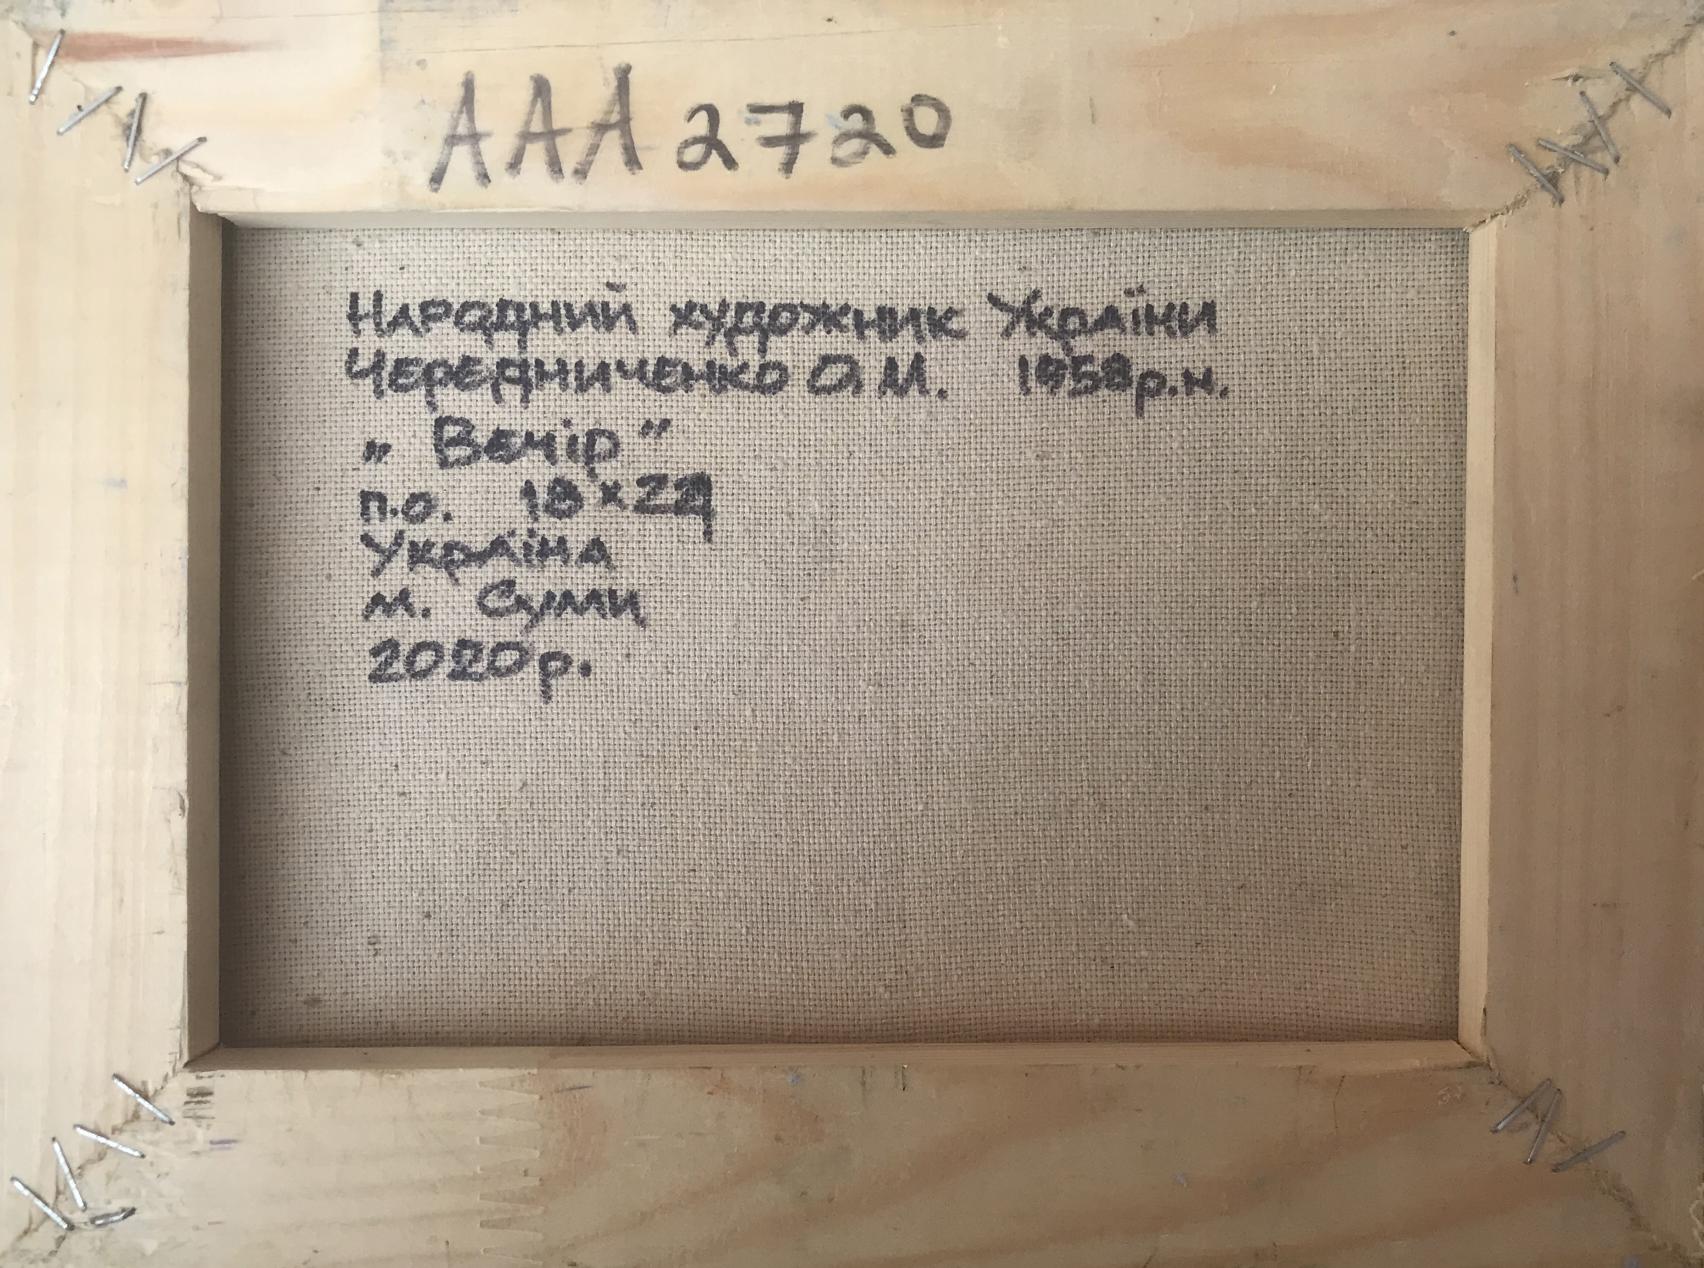 ААА 2720
Народний художник України
Чередниченко О М. 1958р.н.
„ Вечір"
п.о. 18×24
Україна
м. Суми
2020р.